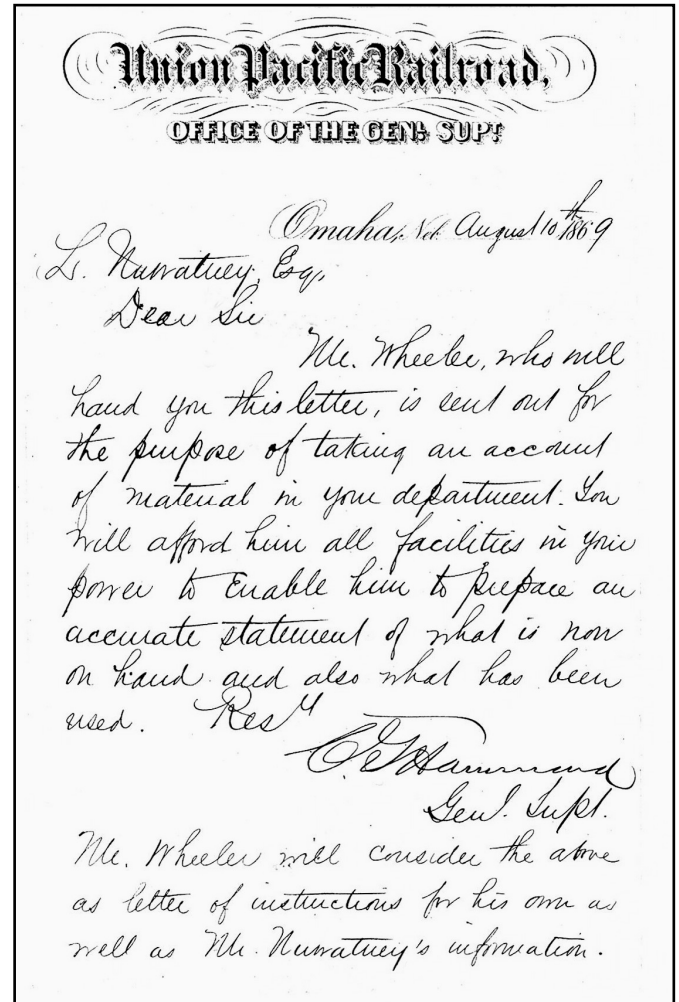 Union Pacific Railroad,
OFFICE OF THE GENL SUPT
Omaha, Neb. August 10th 1869
L. Esq,
Dear Sir
Mr. Wheeler, who will
hand you this letter, is sent out for
the purpose of taking an account
of material in your department. You
will afford him all facilities in your
power to Enable him to prepare an
accurate statement of what is now
on hand and also what has been
used. Resy
C. G. Hammond
Genl. Supt.
Mr. Wheeler will consider the above
as letter of instructions for his own as
well as Mr. information.